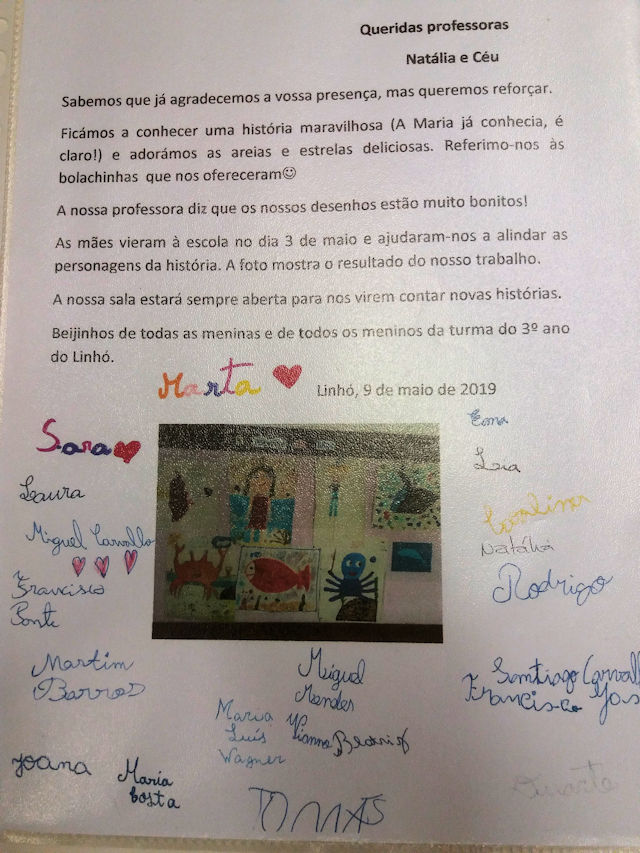 Queridas professoras
Natália e Céu
Sabemos que já agradecemos a vossa presença, mas queremos reforçar.
Ficámos a conhecer uma história maravilhosa (A Maria já conhecia, é
claro!) e adorámos as areias e estrelas deliciosas. Referimo-nos às
bolachinhas que nos ofereceram☺
A nossa professora diz que os nossos desenhos estão muito bonitos!
As mães vieram à escola no dia 3 de maio e ajudaram-nos a alindar as
personagens da história. A foto mostra o resultado do nosso trabalho.
A nossa sala estará sempre aberta para nos virem contar novas histórias.
Beijinhos de todas as meninas e de todos os meninos da turma do 3º ano
do Linhó.
Marta
Linhó, 9 de maio de 2019
Ema
Sara
Leia
Laura
Carolina
Miguel Carvalho
Natália
Francisco
Rodrigo
Ponte
Martim
Barros
Miguel
Mendes
Santiago Carval
Francisco
Maria
Luís
Vianna
Beatriz
Wagner
Joana
Maria
Costa
TOMÁS
Duarte